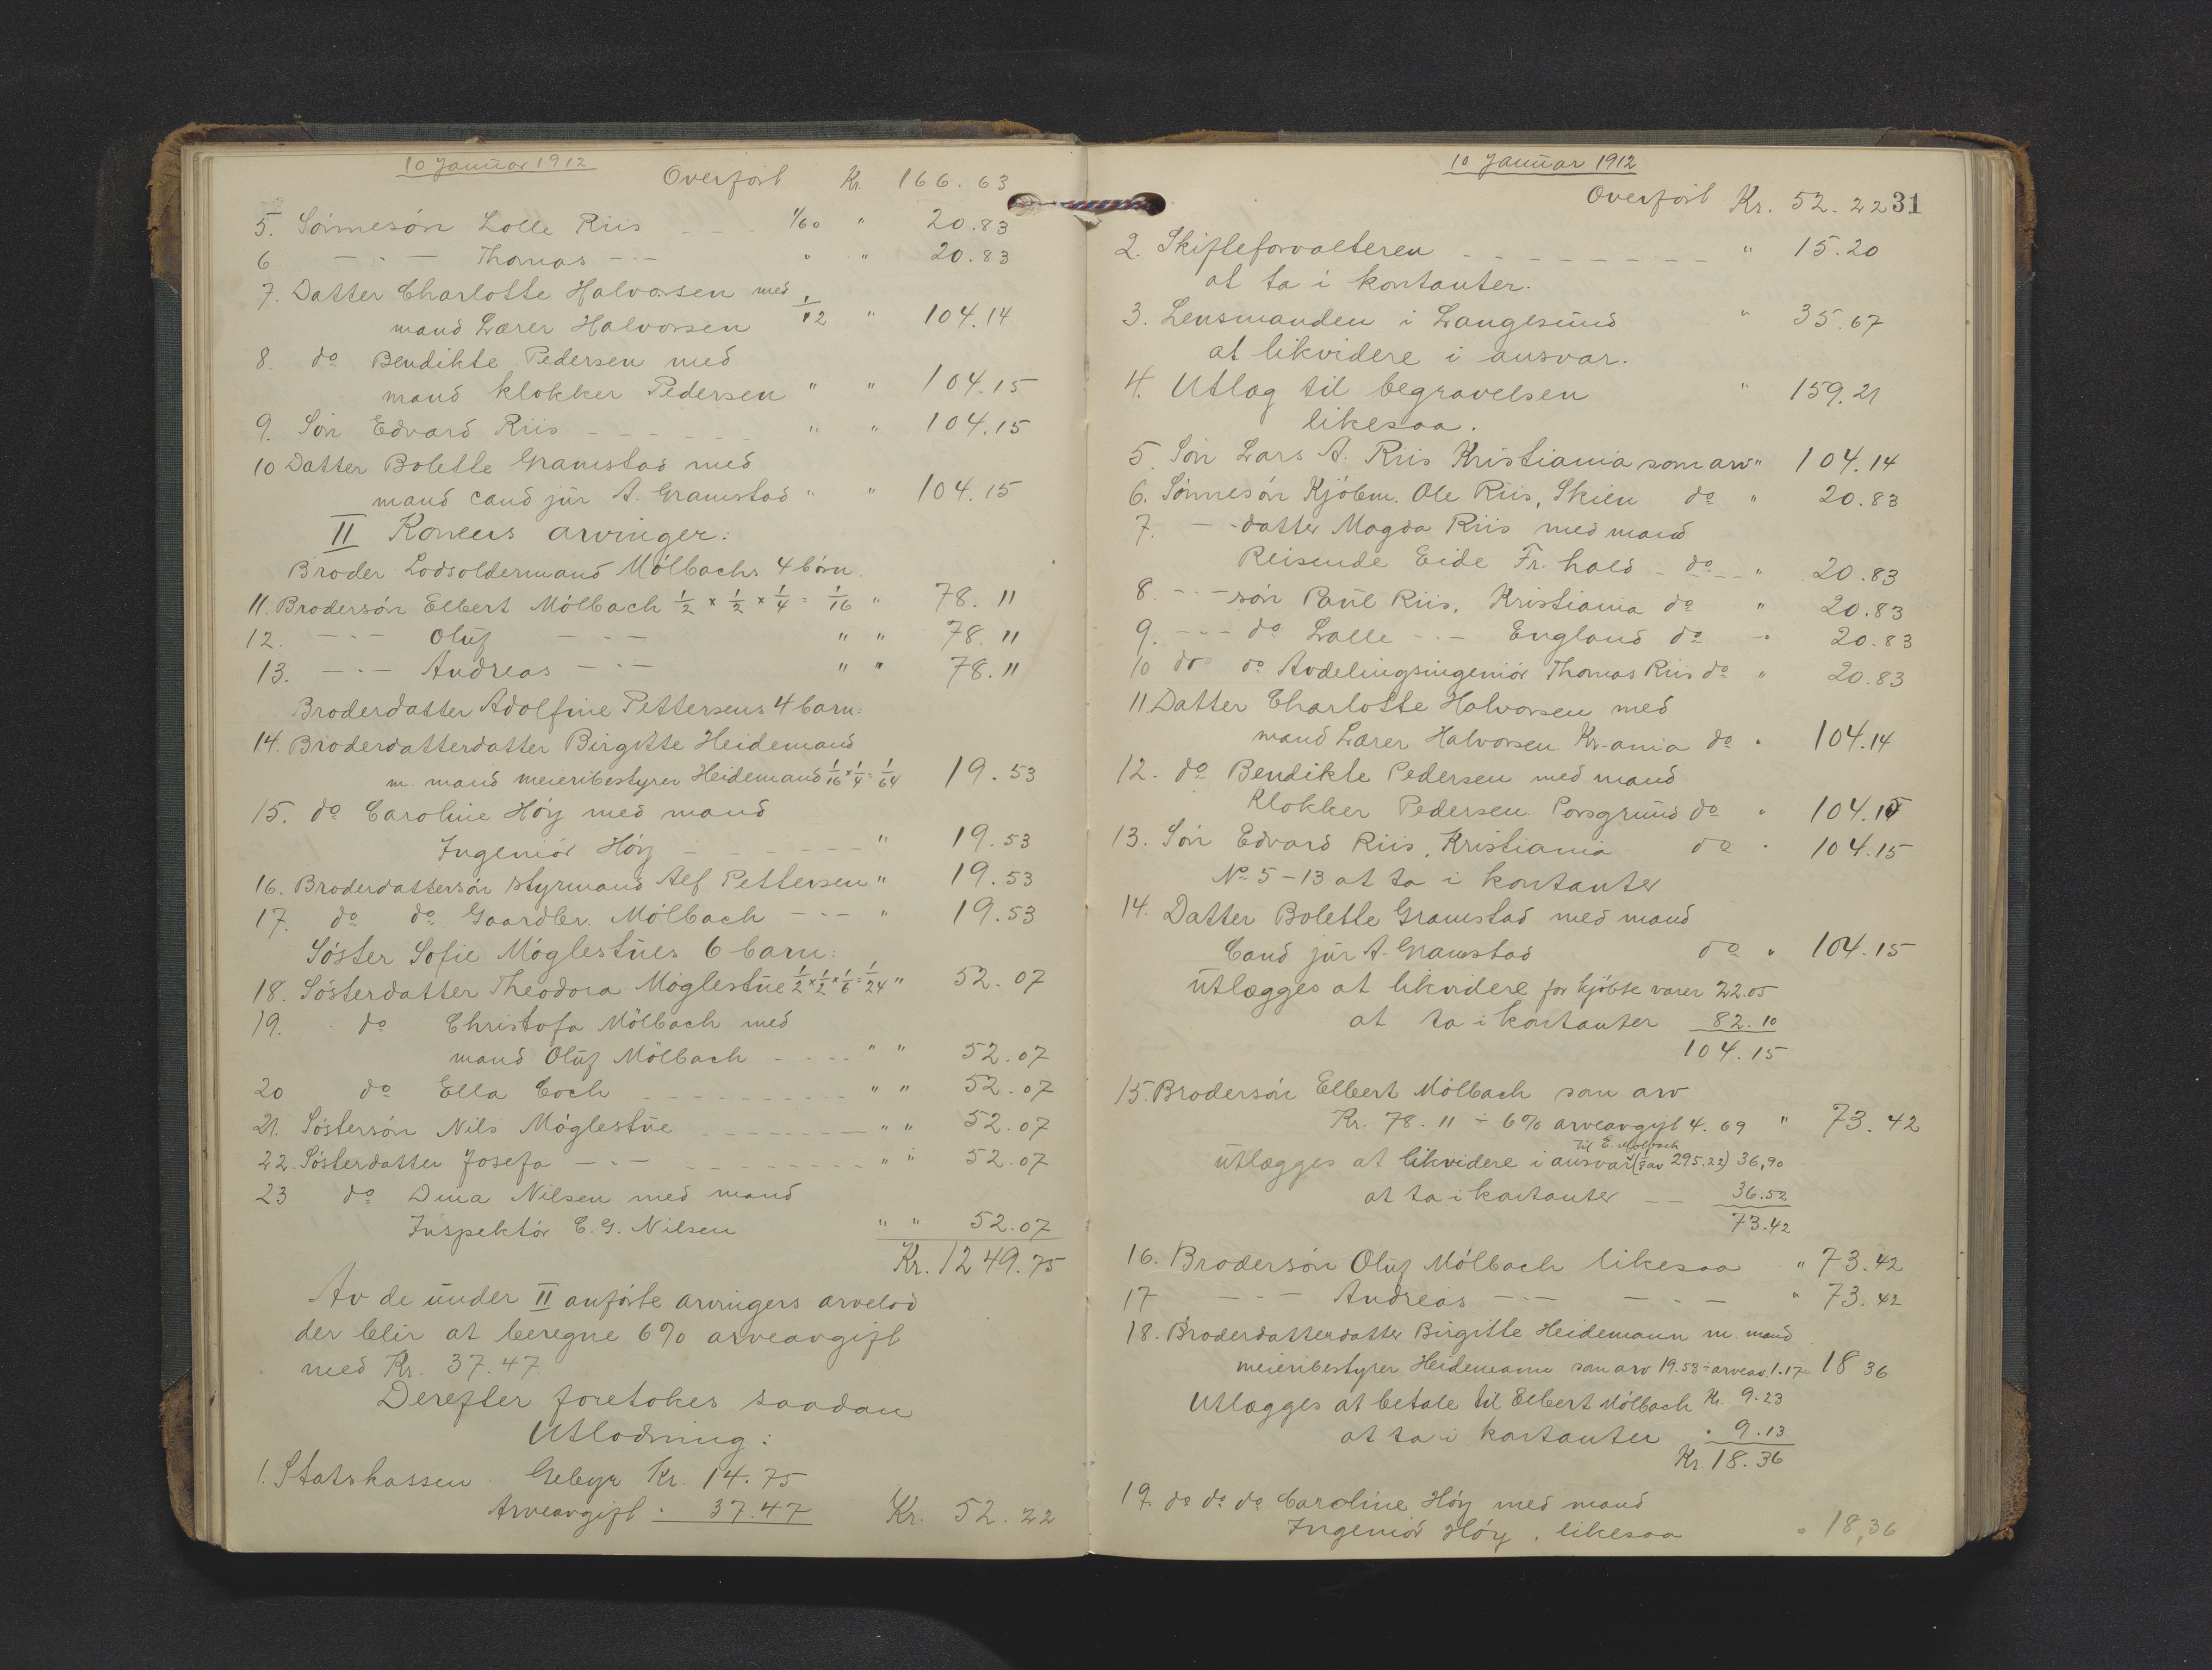 10 Januar 1912
Overført Kr. 166.63
5. Sønnesøn Lolle Riis - - - 1/60 " 20.83
6. - " - Thomas - " - " " 20.83
7. Datter Charlotte Halvorsen med
mand Lærer Halvorsen 1/12 " 104.14
8. do Bendikte Pedersen med
mand klokker Pedersen " " 104.15
9. Søn Edvard Riis - - - - - " " 104.15
10 Datter Bolette Gramstad med
mand cand jur A. Gramstad " " 104.15
II Konens arvinger:
Broder Lodsoldermand Mölbachs 4 börn.
11. Brodersön Elbert Mölbach 1/2 x 1/2 x 1/4 = 1/16 " 78.11
12. - " - Oluf - " - " " 78.11
13. - " - Andreas - " - " " 78.11
Broderdatter Adolfine Pettersens 4 barn:
14. Broderdatterdatter Birgitte Heidemand
m. mand meieribestyrer Heidemand 1/16 x 1/4 = 1/64 19.53
15. do Caroline Höy med mand
Ingeniör Höy - - - - - - " 19.53
16. Broderdattersön styrmand Alf Pettersen " 19.53
17. do do Gaardbr. Mölbach - " - " 19.53
Söster Sofie Möglestues 6 barn:
18. Sösterdatter Theodora Möglestue 1/2 x 1/2 x 1/6 = 1/24 " 52.07
19. do Christofa Mölbach med
mand Oluf Mölbach - - - - " " 52.07
20 do Ella Coch - - - - - - - - " " 52.07
21. Söstersön Nils Möglestue - - - - - - " " 52.07
22. Sösterdatter Josefa - " - - - - - - - " " 52.07
23 do Dina Nilsen med mand
Inspektör C. G. Nilsen " " 52.07
Kr. 1249.75
Av de under II anförte arvingers arvelod
der blir at beregne 6% arveavgift
med Kr. 37.47.
Derefter foretokes saadan
Utlodning:
1. Statskassen Gebyr Kr. 14.75
Arveavgift " 37.47 Kr. 52.22
10 Januar 1912
Overført Kr. 52.22 31
2. Skifteforvalteren - - - - - - - - " 15.20
at ta i kontanter.
3. Lensmanden i Langesund " 35.67
at likvidere i ansvar.
4. Utlæg til begravelsen " 159.21
likesaa.
5. Søn Lars A. Riis Kristiania som arv " 104.14
6. Sönnesön Kjöbm. Ole Riis, Skien do " 20.83
7. - " - datter Magda Riis med mand
Reisende Eide Fr. hald - do - - " 20.83
8. - " - søn Paul Riis, Kristiania do " 20.83
9. - " - do Lalle - " - England do - " 20.83
10 do do Avdelingsingeniör Thomas Riis do " 20.83
11 Datter Charlotte Halvorsen med
mand Lærer Halvorsen Kr-ania do " 104.14
12. do Bendikte Pedersen med mand
Klokker Pedersen. Porsgrund do " 104.15
13. Søn Edvard Riis, Kristiania do " 104.15
No 5-13 at ta i kontanter
14. Datter Bolette Gramstad med mand
Cand jur A. Gramstad do " 104.15
utlægges at likvidere for kjöbte varer 22.05
at ta i kontanter 82.10
104.15
15. Brodersön Elbert Mölbach som arv
Kr. 78.11 ÷ 6% arveavgift 4.69 " 73.42
til E. Mölbach
utlægges at likvidere i ansvar (1/8 av 295.22) 36,90
at ta i kontanter - - 36.52
73.42
16. Brodersön Oluf Mölbach likesaa " 73.42
17 - " - Andreas - " - - " - " 73.42
18. Broderdatterdatter Birgitte Heidemann m. mand
meieribestyrer Heidemann som arv 19.53 ÷ arveav. 1.17 " 18 36
Utlægges at betale til Elbert Mölbach Kr. 9.23
at ta i kontanter " 9.13
Kr. 18.36
19. do do do Caroline Höy med mand
Ingeniör Höy, likesaa " 18,36